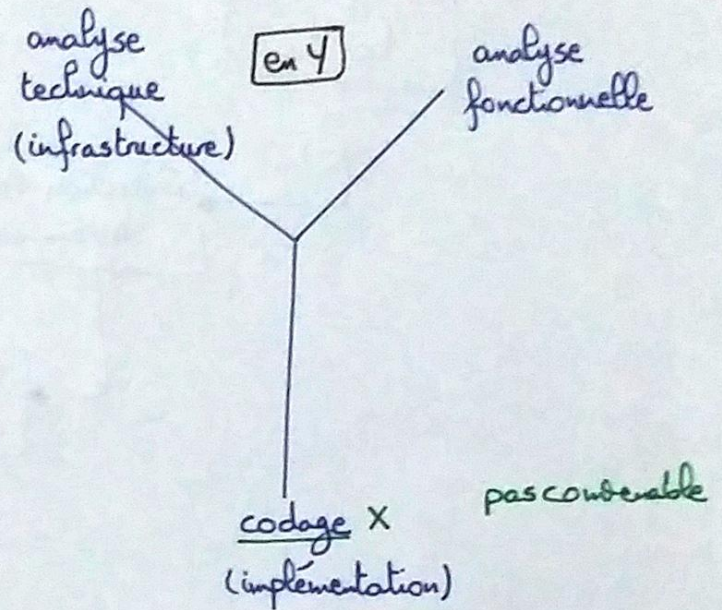 analyse
technique
(infrastructure)
en Y
analyse
fonctionnelle
codage X
(implémentation)
pas